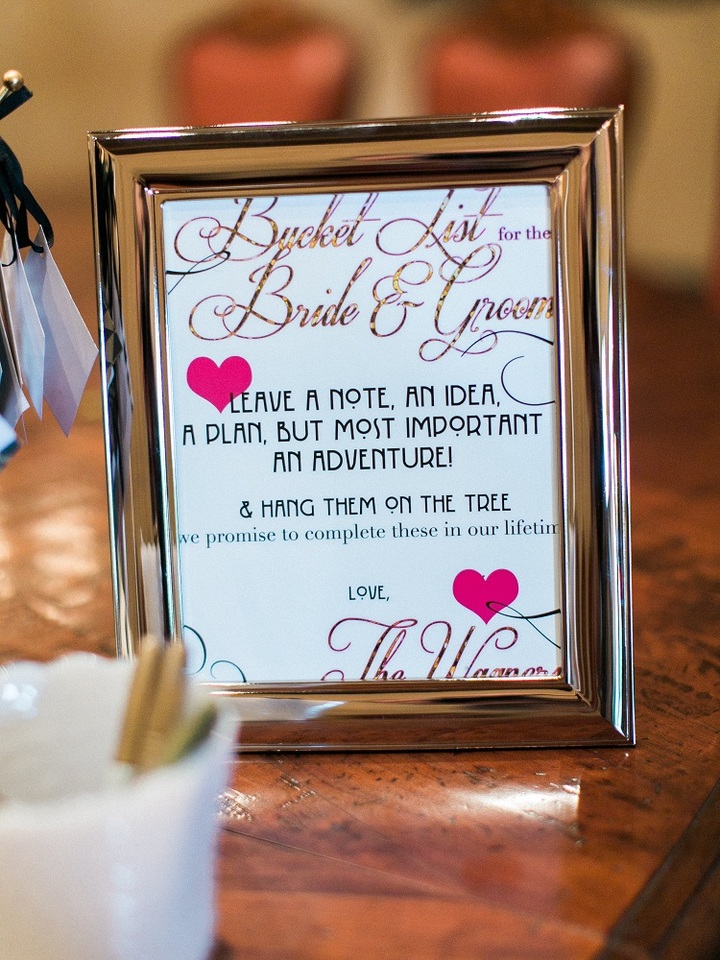 Bucket List for the
Bride & Groom
LEAVE A NOTE, AN IDEA,
A PLAN, BUT MOST IMPORTANT
AN ADVENTURE!
& HANG THEM ON THE TREE
we promise to complete these in our lifetim
LOVE,
The Wagners